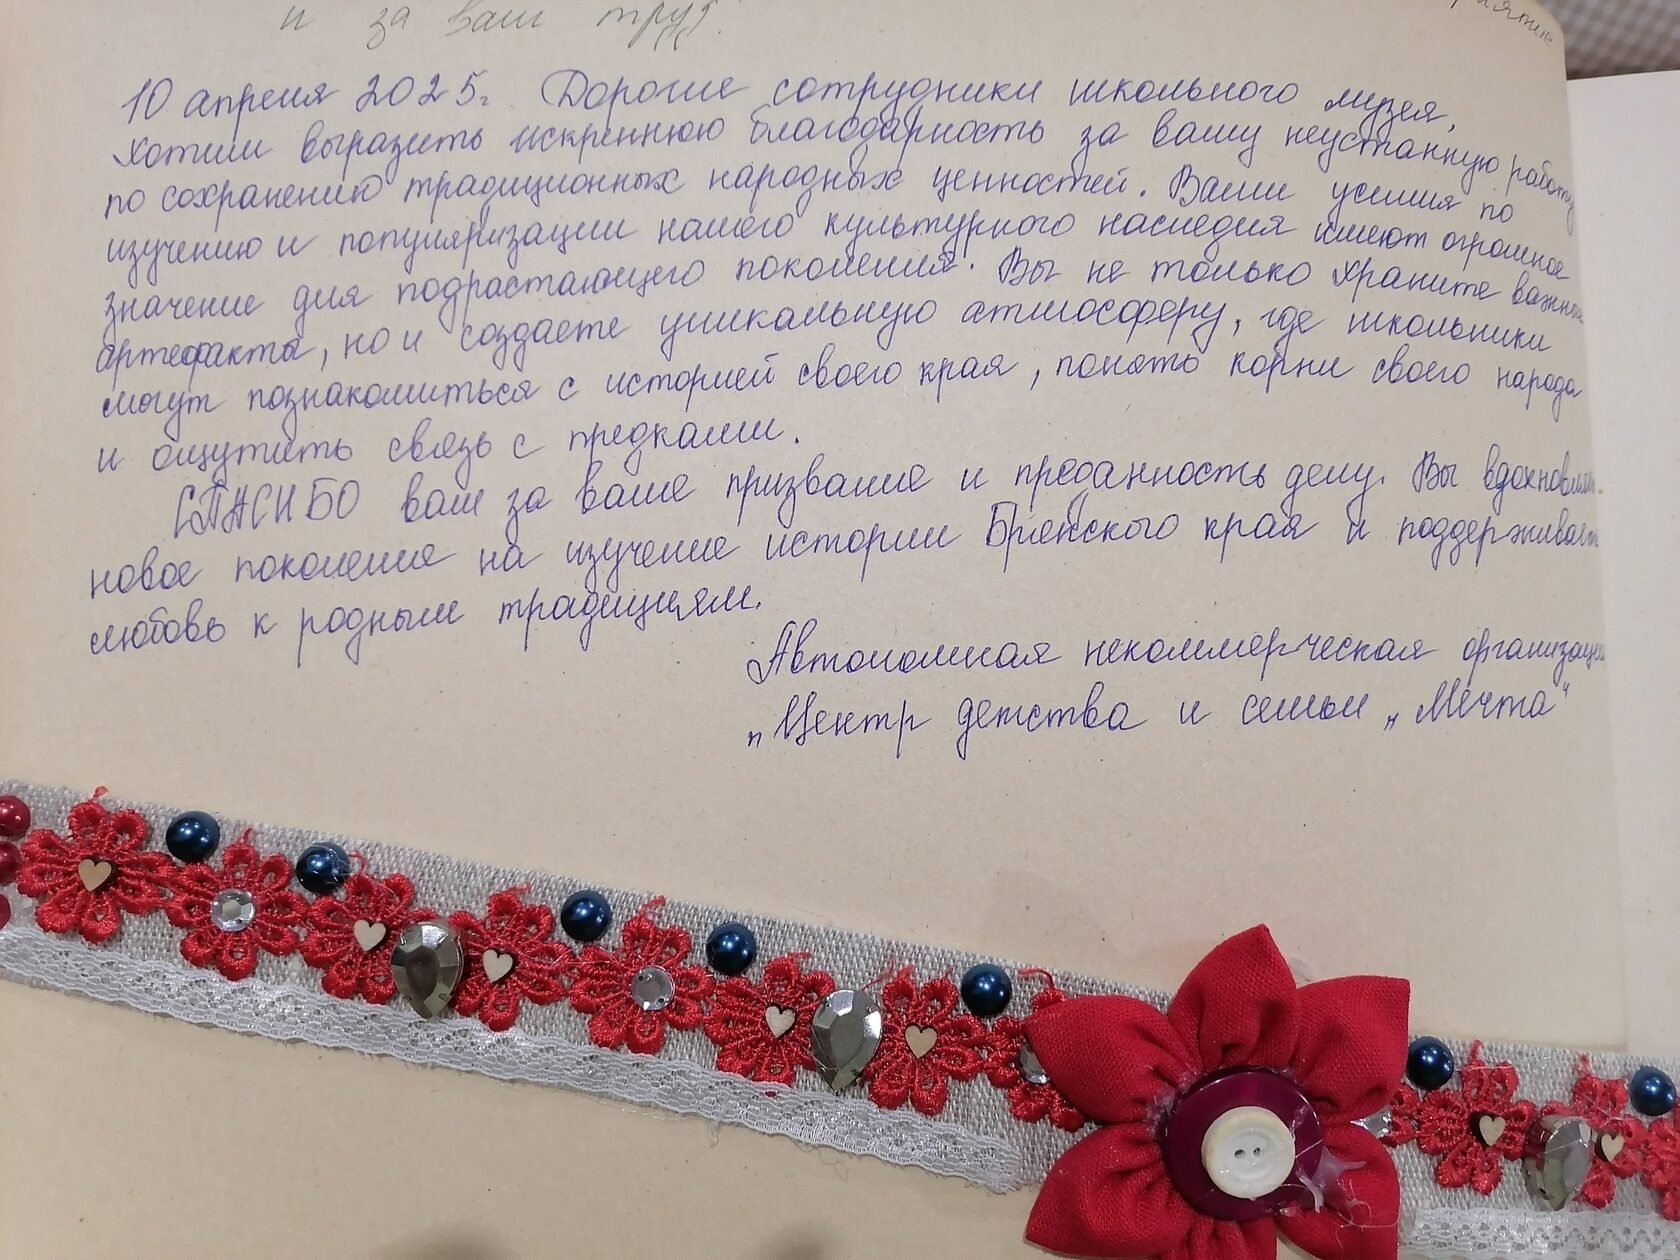 и за ваш труд.
10 апреля 2025г. Дорогие сотрудники школьного музея,
хотим выразить искреннюю благодарность за вашу неустанную работу
по сохранению традиционных народных ценностей. Ваши усилия по
изучению и популяризации нашего культурного наследия имеют огромное
значение для подрастающего поколения. Вы не только храните важные
артефакты, но и создаете уникальную атмосферу, где школьники
могут познакомиться с историей своего края, понять корни своего народа
и ощутить связь с предками.
СПАСИБО вам за ваше призвание и преданность делу. Вы вдохновляете
новое поколение на изучение истории Брянского края и поддерживаете
любовь к родным традициям.
Автономная некоммерческая организация
„Центр детства и семьи „Мечта"